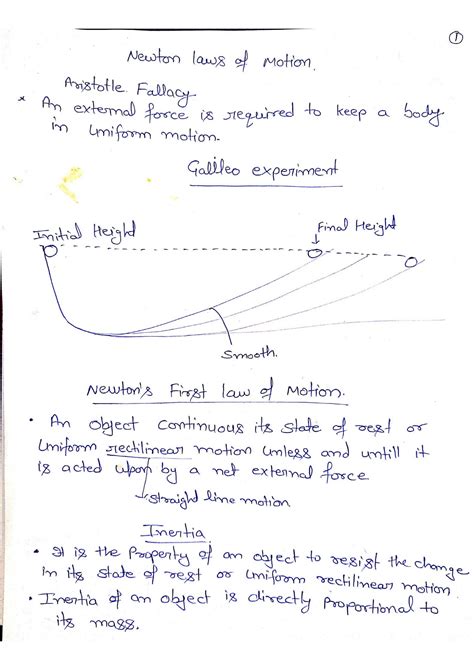 ①
Newton laws of Motion.
Aristotle Fallacy
* An external force is required to keep a body
in Uniform motion.
Galileo experiment
Initial Height
Final Height
Smooth.
Newton's First law of Motion.
• An object continuous its state of rest or
Uniform rectilinear motion unless and untill it
is acted upon by a net external force
straight line motion
Inertia
• It is the Property of an object to resist the change
in its state of rest or Uniform rectilinear motion
• Inertia of an object is directly proportional to
its mass.